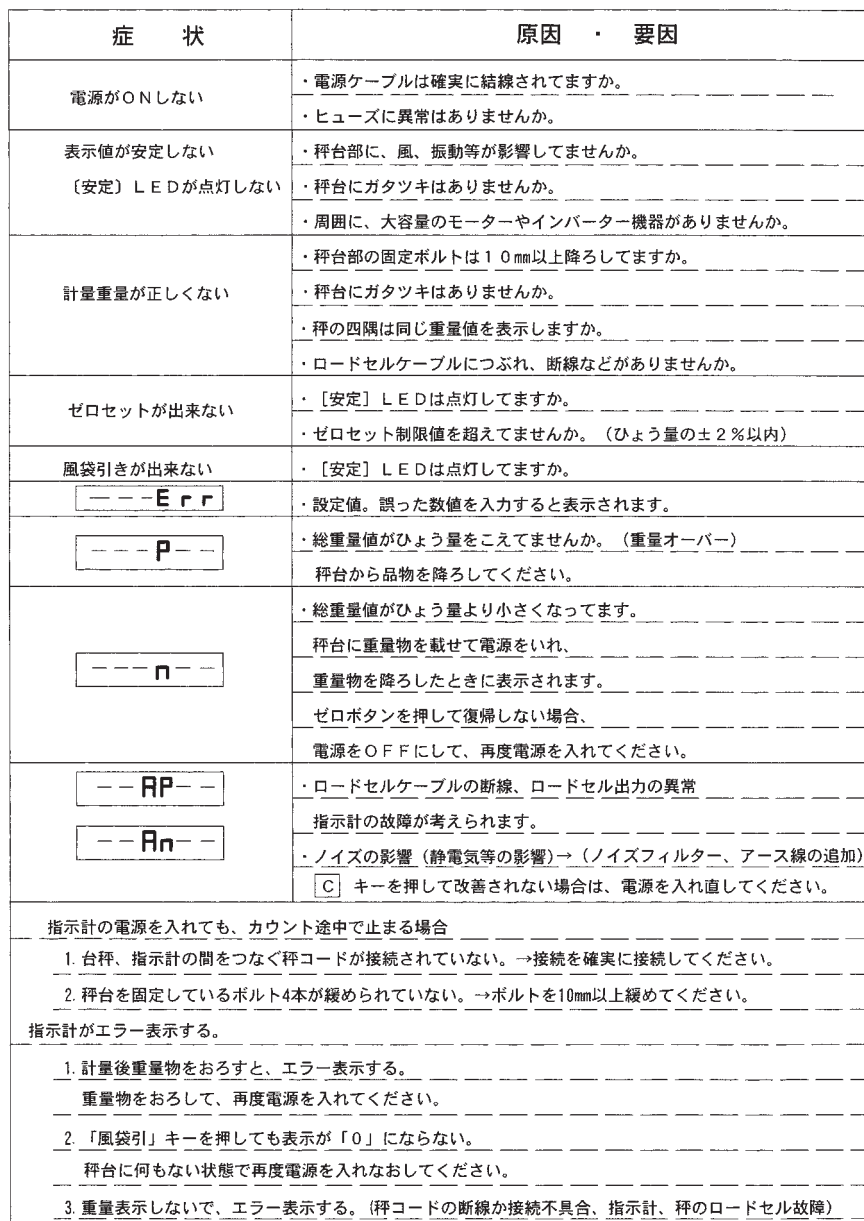 症 状 原因 ・ 要因
電源がONしない
・電源ケーブルは確実に結線されてますか。
・ヒューズに異常はありませんか。
表示値が安定しない
〔安定〕LEDが点灯しない
・秤台部に、風、振動等が影響してませんか。
・秤台にガタツキはありませんか。
・周囲に、大容量のモーターやインバーター機器がありませんか。
計量重量が正しくない
・秤台部の固定ボルトは10㎜以上降ろしてますか。
・秤台にガタツキはありませんか。
・秤の四隅は同じ重量値を表示しますか。
・ロードセルケーブルにつぶれ、断線などがありませんか。
ゼロセットが出来ない
・[安定]LEDは点灯してますか。
・ゼロセット制限値を超えてませんか。(ひょう量の±2%以内)
風袋引きが出来ない
・[安定]LEDは点灯してますか。
---Err
・設定値。誤った数値を入力すると表示されます。
---P--
・総重量値がひょう量をこえてませんか。(重量オーバー)
秤台から品物を降ろしてください。
---n--
・総重量値がひょう量より小さくなってます。
秤台に重量物を載せて電源をいれ、
重量物を降ろしたときに表示されます。
ゼロボタンを押して復帰しない場合、
電源をOFFにして、再度電源を入れてください。
--AP--
--An--
・ロードセルケーブルの断線、ロードセル出力の異常
指示計の故障が考えられます。
・ノイズの影響(静電気等の影響)→(ノイズフィルター、アース線の追加)
C キーを押して改善されない場合は、電源を入れ直してください。
指示計の電源を入れても、カウント途中で止まる場合
1. 台秤、指示計の間をつなぐ秤コードが接続されていない。→接続を確実に接続してください。
2. 秤台を固定しているボルト4本が緩められていない。→ボルトを10㎜以上緩めてください。
指示計がエラー表示する。
1. 計量後重量物をおろすと、エラー表示する。
重量物をおろして、再度電源を入れてください。
2. 「風袋引」キーを押しても表示が「0」にならない。
秤台に何もない状態で再度電源を入れなおしてください。
3. 重量表示しないで、エラー表示する。(秤コードの断線か接続不具合、指示計、秤のロードセル故障)